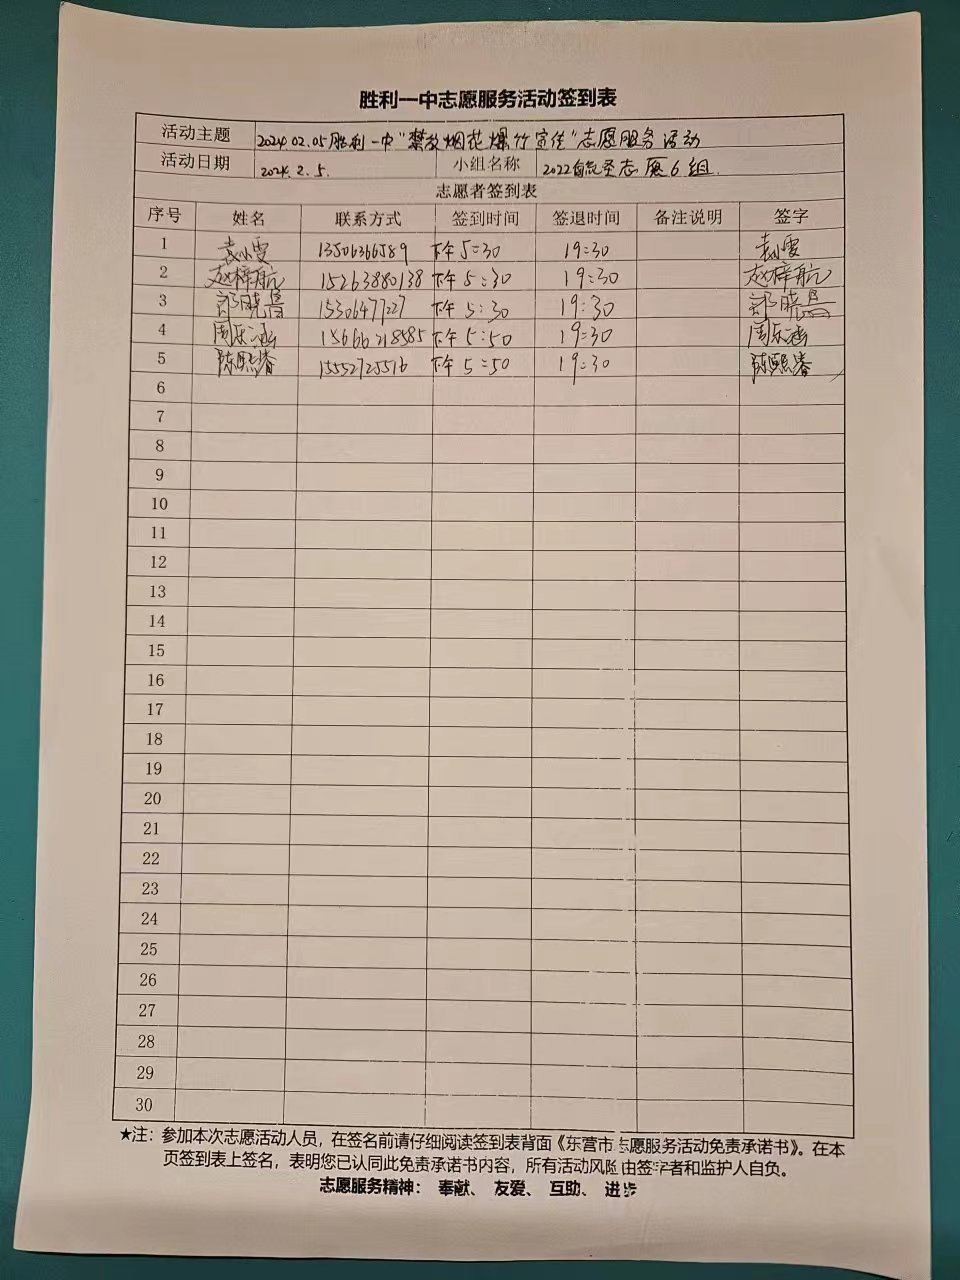 胜利一中志愿服务活动签到表
活动主题 2024.02.05胜利一中"禁放烟花爆竹宣传"志愿服务活动
活动日期 2024.2.5. 小组名称 2022级志愿6组.
志愿者签到表
序号 姓名 联系方式 签到时间 签退时间 备注说明 签字
1 袁小雯 13506366589 下午5:30 19:30 袁小雯
2 赵梓航 15263880138 下午5:30 19:30 赵梓航
3 晓 15306477227 下午5:30 19:30 晓
4 周乐涵 15666218585 下午5:50 19:30 周乐涵
5 陈熙睿 15552725516 下午5:50 19:30 陈熙睿
6
7
8
9
10
11
12
13
14
15
16
17
18
19
20
21
22
23
24
25
26
27
28
29
30
★注：参加本次志愿活动人员，在签名前请仔细阅读签到表背面《东营市志愿服务活动免责承诺书》。在本
页签到表上签名，表明您已认同此免责承诺书内容，所有活动风险由签字者和监护人自负。
志愿服务精神： 奉献、 友爱、 互助、 进步